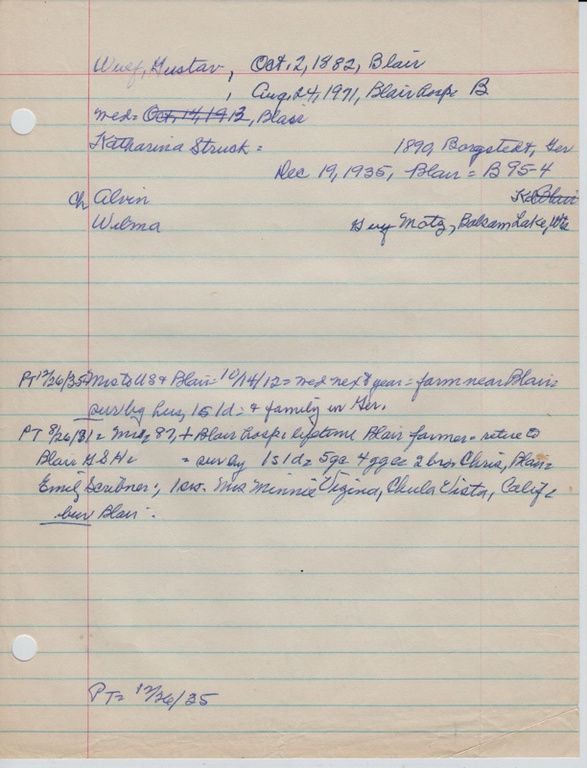 Wulf, Gustav, Oct. 2, 1882, Blair
, Aug. 24, 1971, Blair hosp B
med = Oct. 14, 1913, Blair
Katharina Struck = 1890, Borgstedt, Ger
Dec 19, 1935, Blair = B 95-4
Ch Alvin Blair
Wilma Guy Motz, Balsam Lake,
PT 12/26/35 = to US & Blair = 10/14/12 = med next year = farm near Blair =
sur by hus, 1s 1d = & family in Ger.
PT 8/26/ = 87, + Blair hosp = lifetime Blair farmer = retire to
Blair = sur by 1s 1d = 5gc 4 ggc = 2 bro. Chris, Blair =
Emil, Scribner =, 1 sis. Mrs Minnie, Chula Vista, Calif =
bur Blair.
PT = 12/26/35